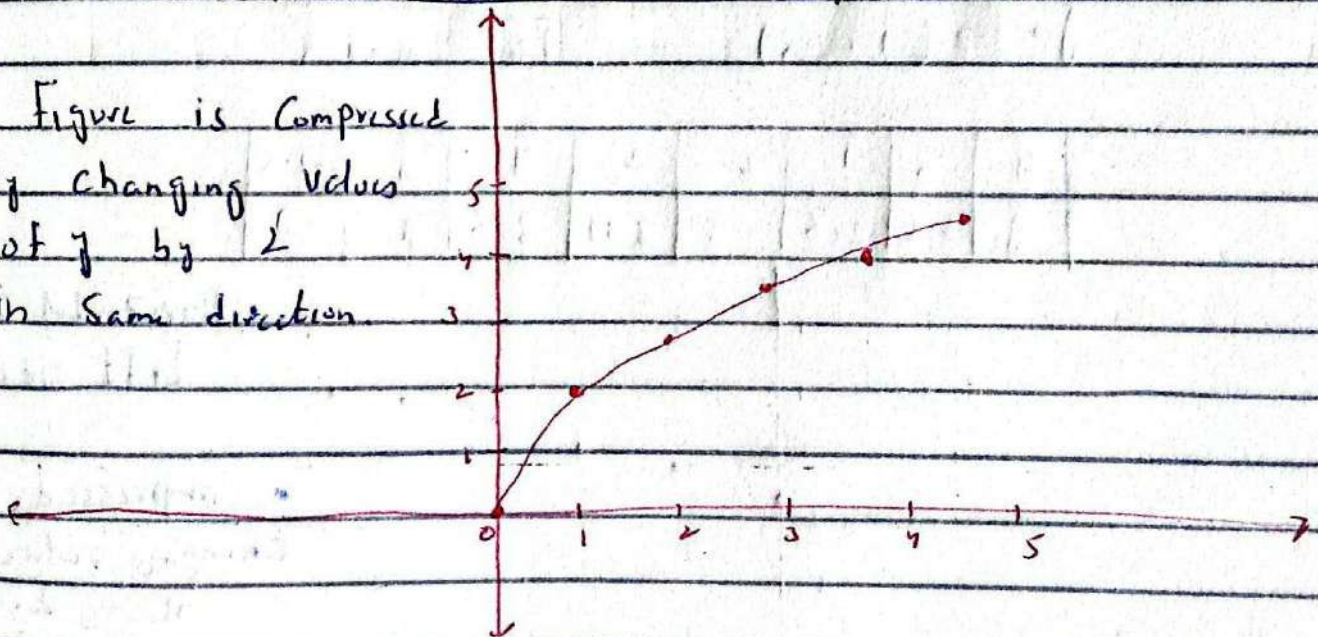 Figure is Compressed
y changing values
of y by 2
in Same direction.
5
4
3
2
1
0 1 2 3 4 5